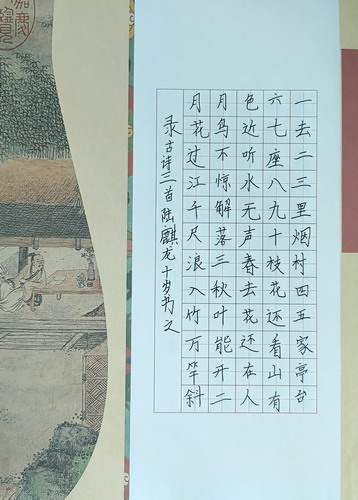 一去二三里烟村四五家亭台
六七座八九十枝花还看山有
色近听水无声春去花还在人
月鸟不惊解落三秋叶能开二
月花过江千尺浪入竹万竿斜
录古诗三首陆麒龙十岁书之